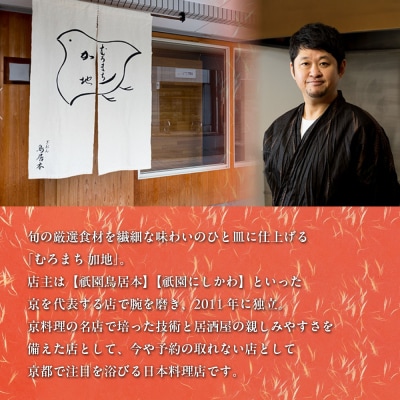 むろまち
か地
ぎおん
鳥居本
旬の厳選食材を繊細な味わいのひと皿に仕上げる
「むろまち 加地」。
店主は【祇園鳥居本】【祇園にしかわ】といった
京を代表する店で腕を磨き、2011年に独立。
京料理の名店で培った技術と居酒屋の親しみやすさを
備えた店として、今や予約の取れない店として
京都で注目を浴びる日本料理店です。